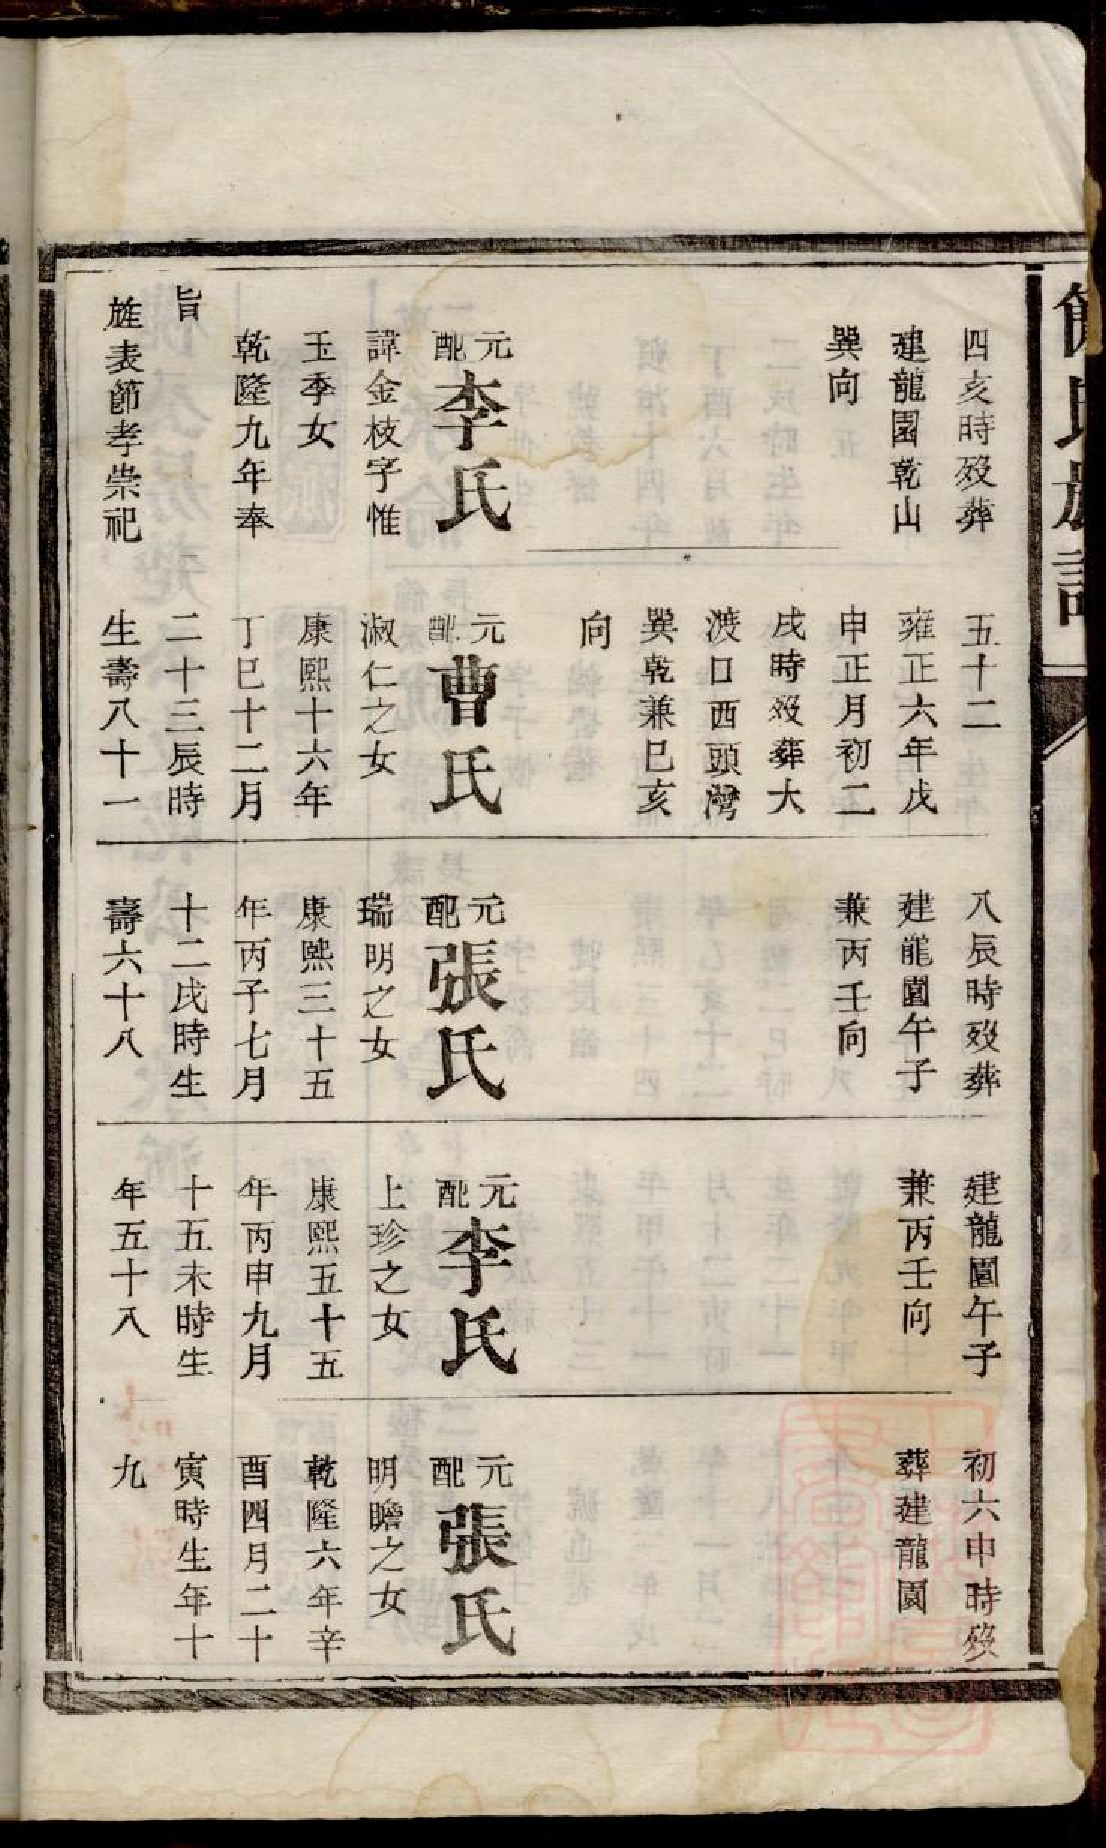 四亥時歿葬
建龍園乾山
巽向
元配李氏
諱金枝字惟
玉季女
乾隆九年奉
旨
旌表節孝崇祀
五十二
雍正六年戊
申正月初二
戌時歿葬大
渡口西頭灣
巽乾兼巳亥
向
元配曹氏
淑仁之女
康熙十六年
丁巳十二月
二十三辰時
生壽八十一
八辰時歿葬
建龍園午子
兼丙壬向
元配張氏
瑞明之女
康熙三十五
年丙子七月
十二戌時生
壽六十八
建龍園午子
兼丙壬向
元配李氏
上珍之女
康熙五十五
年丙申九月
十五未時生
年五十八
初六申時歿
葬建龍園
元配張氏
明瞻之女
乾隆六年辛
酉四月二十
寅時生年十
九